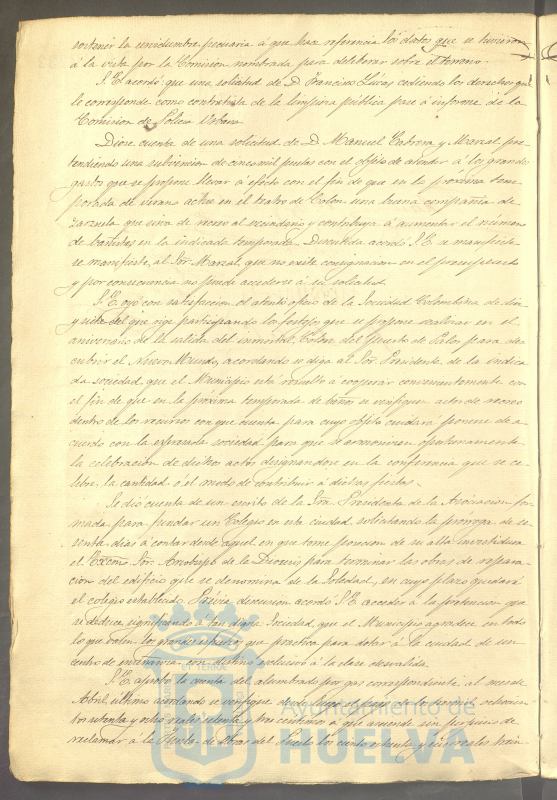 sostener la servidumbre pecuaria á que hace referencia los datos que se tuvieron
á la vista por la Comision nombrada para deliberar sobre el terreno.
S. E. acordó: que una solicitud de D. Francisco Lucas cediendo los derechos que
le corresponde como contratista de la limpieza pública pase á informe de la
Comision de Policia Urbana.
Diose cuenta de una solicitud de D. Manuel Cabrera y Marzal pre-
tendiendo una subvencion de cinco mil pesetas con el objeto de atender á los grandes
gastos que se propone llevar á efecto con el fin de que en la próxima tem-
porada de verano actue en el teatro de Colon una buena compañia de
zarzuela que sirva de recreo al vecindario y contribuya á aumentar el número
de bañistas en la indicada temporada. Discutida acordó S. E. se manifieste
se manifieste al Sor. Marzal, que no existe consignacion en el presupuesto
y por consecuencia no puede accederse á su solicitud.
S. E. oyó con satisfaccion el atento oficio de la Sociedad Colombina de diez
y siete del que rige participando los festejos que se propone realizar en el
aniversario de la salida del inmortal Colon del Puerto de Palos para des-
cubrir el Nuevo Mundo, acordando se diga al Sor. Presidente de la indica-
da sociedad, que el Municipio está resuelto á cooperar convenientemente con
el fin de que en la próxima temporada de baños se verifiquen actos de recreo
dentro de los recursos con que cuenta para cuyo objeto cuidará ponerse de a-
cuerdo con la expresada sociedad para que se armonicen oportunamente
la celebracion de dichos actos designandose en la conferencia que se ce-
lebre, la cantidad ó el modo de contribuir á dichas fiestas.
Se dió cuenta de un escrito de la Sra. Presidenta de la Asociacion for-
mada para fundar un Colegio en esta ciudad, solicitando la próroga de se-
senta dias á contar desde aquel en que tome posesion de su alta investidura
el Excmo. Sor. Arzobispo de la Diocesis para terminar las obras de repara-
cion del edificio que se denomina de la Soledad, en cuyo plazo quedará
el colegio establecido. Prévia discusion acordó S. E. acceder á la pretencion que
se deduce, significando á tan digna Sociedad, que el Municipio agradece en todo
lo que valen los grandes esfuerzos que practica para dotar á la ciudad de un
centro de enseñanza con destino exclusivo á la clase desvalida.
S. E. aprobó la cuenta del alumbrado por gas correspondiente al mes de
Abril último acordando se verifique desde luego el pago de los mil ochocien-
tos setenta y ocho reales setenta y tres centimos á que asciende sin perjuicio de
reclamar á la Junta de Obras del Puerto los ciento ochenta y seis reales trein-
Ayuntamiento de
HUELVA